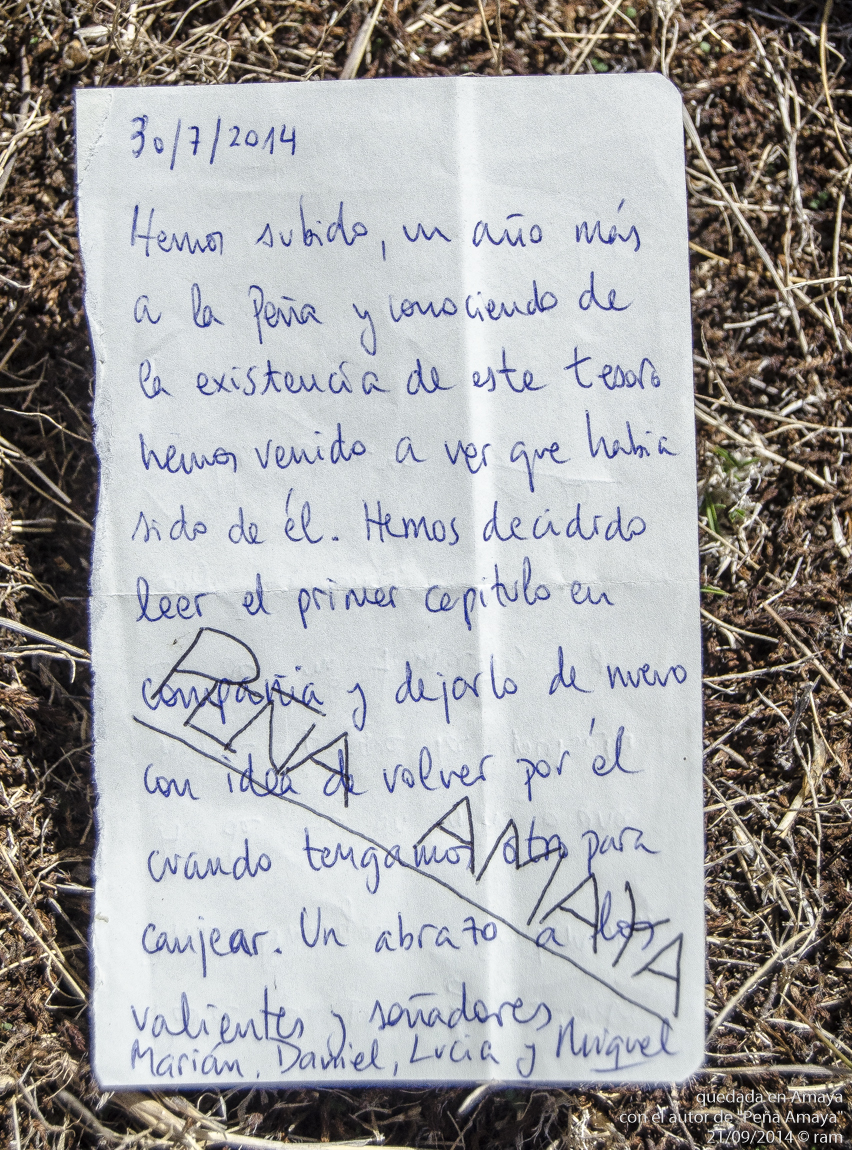 30/7/2014
Hemos subido, un año más
a la Peña y conociendo de
la existencia de este tesoro
hemos venido a ver que habia
sido de él. Hemos decidido
leer el primer capitulo en
compañia y dejarlo de nuevo
con idea de volver por él
cuando tengamos otro para
canjear. Un abrazo a los
valientes y soñadores
Marián, Daniel, Lucia y Miguel
PEÑA
AMAYA
quedada en Amaya
con el autor de "Peña Amaya"
21/09/2014 © ram